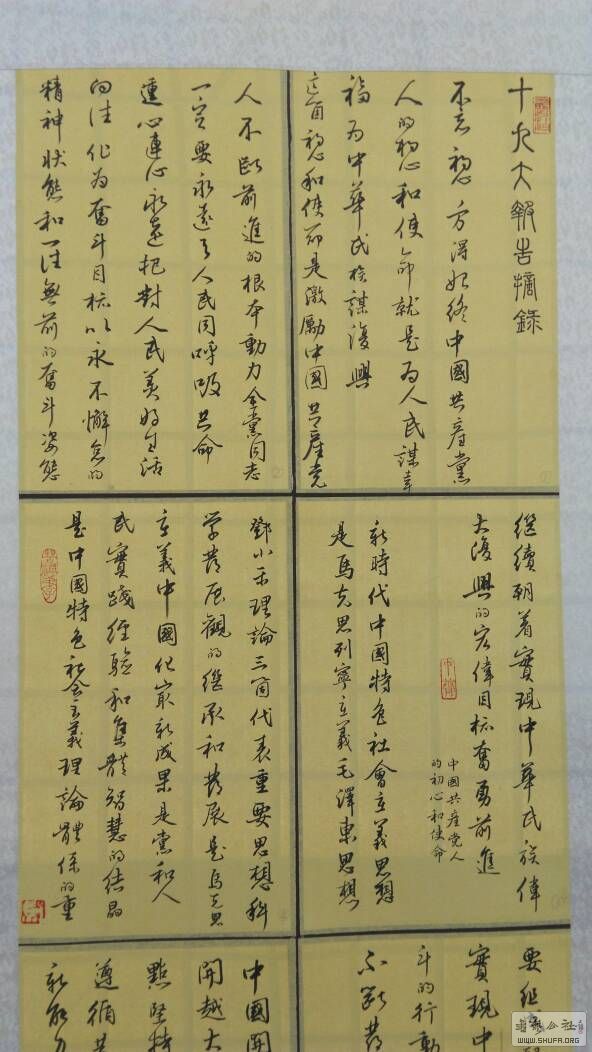 十九大報告摘錄
不忘初心方得始終中國共產黨
人的初心和使命就是为人民謀幸
福为中華民族謀復興
這個初心和使命是激勵中國共產党
人不斷前進的根本動力全黨同志
一定要永遠与人民同呼吸共命
運心連心永遠把對人民美好生活
向往作为奮斗目标以永不懈怠的
精神狀態和一往無前的奮斗姿態
繼續朝着實現中華民族偉
大復興的宏偉目标奮勇前進
中國共產党人
的初心和使命
新時代中國特色社會主義思想
是馬克思列寧主義毛澤東思想
鄧小平理論三個代表重要思想科
学發展觀的继承和發展是馬克思
主義中國化最新成果是黨和人
民實踐经驗和集體智慧的结晶
是中國特色社会主義理論體係的重
要组
實現中
斗的行動
不断發
中國開
開越大
點堅持
遵循其
书法公社
WWW.SHUFA.ORG